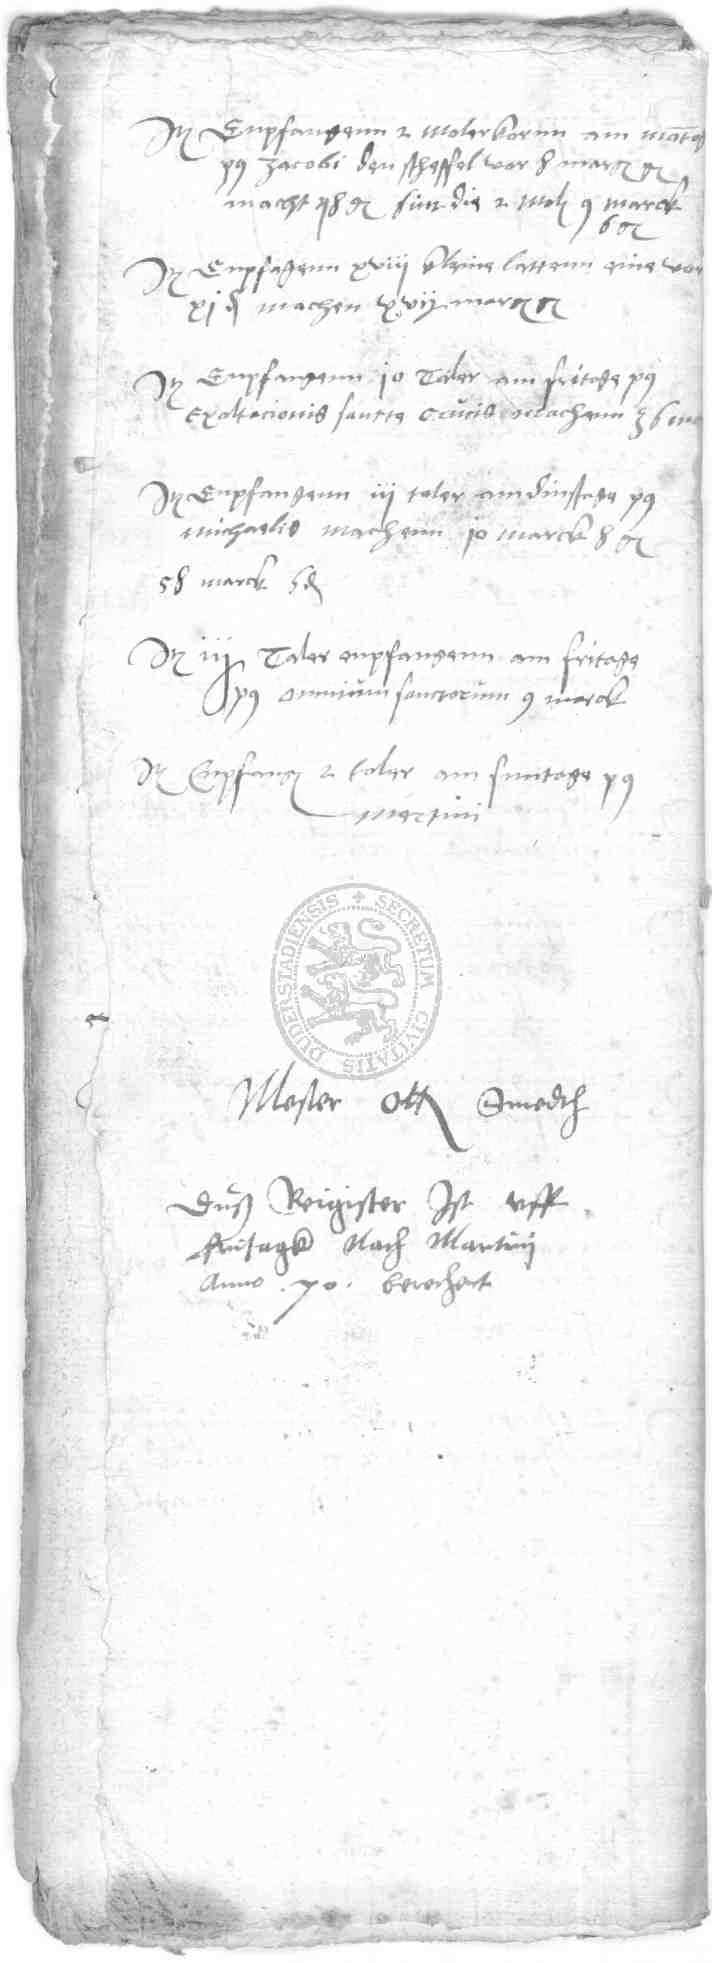 Itz Enpfangenn 2 Molerkornn am mātag
pq Jacobi den scheffel vor 8 marg
macht 48 g sint die 2 Mol 9 marck
6 g
Itz Enpfagenn xviij kleine lattenn eine vor
xj d machen
Itz Enpfangenn 10 Taler am fritage pq
Exaltacionis sancte crucis Machenn 36 m
Itz Enpfangenn iij taler am dinstage pq
michaelis machenn 10 marck 8 g
58 marck 6 d
Itz iij Taler enpfangenn am fritage
pq omnium sanctorum 9 marck
Itz Enpfang 2 taler am suntage pq
Martini
SECRETUM CIVITATIS DUDERSTADIENSIS
Mester Ott Smedth
Duß Reigister Ist vff
fritagk Nach Martinij
Anno . 70 . berechent